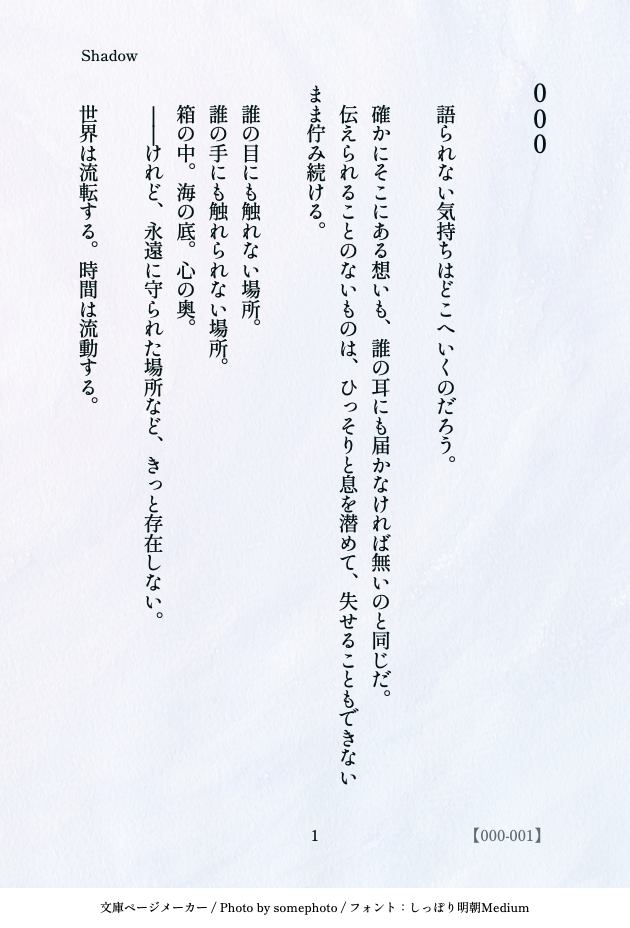 Shadow
000
語られない気持ちはどこへいくのだろう。
確かにそこにある想いも、誰の耳にも届かなければ無いのと同じだ。
伝えられることのないものは、ひっそりと息を潜めて、失せることもできない
まま佇み続ける。
誰の目にも触れない場所。
誰の手にも触れられない場所。
箱の中。海の底。心の奥。
――けれど、永遠に守られた場所など、きっと存在しない。
世界は流転する。時間は流動する。
1
【000-001】
文庫ページメーカー / Photo by somephoto / フォント：しっぽり明朝Medium